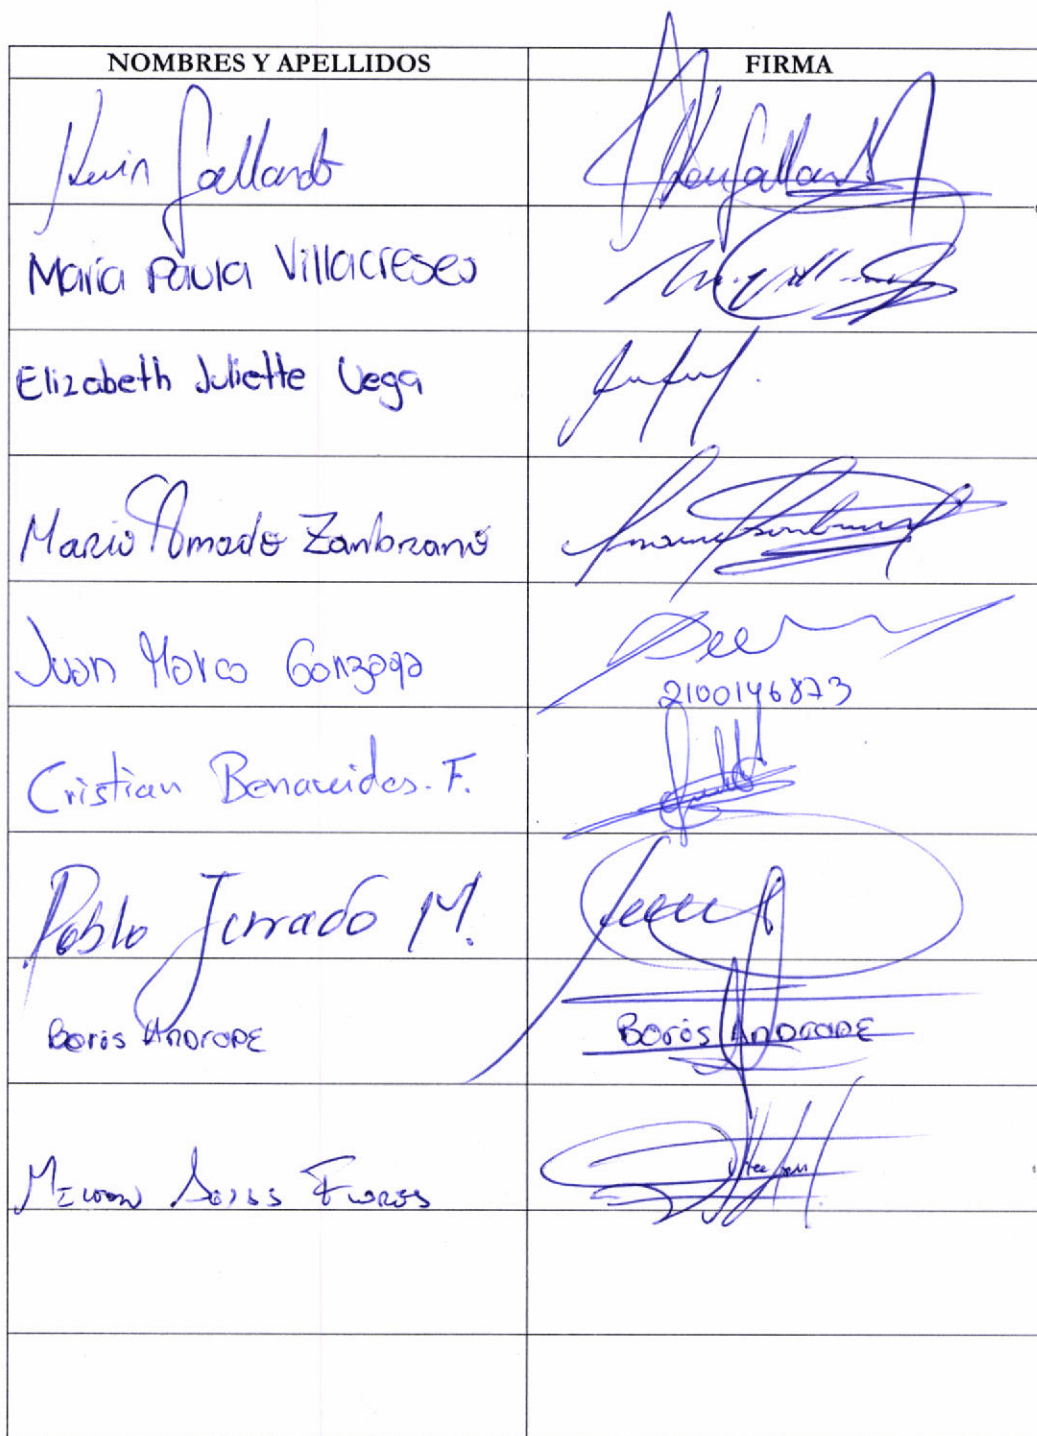 NOMBRES Y APELLIDOS FIRMA
Kevin Gallardo
María Paula Villacreses
Elizabeth Juliette Vega
Mario Amado Zambrano
Juan Marco Gonzaga
2100146873
Cristian Benavides. F.
Pablo Jurado M.
Boris Andrade Boris Andrade
Flores